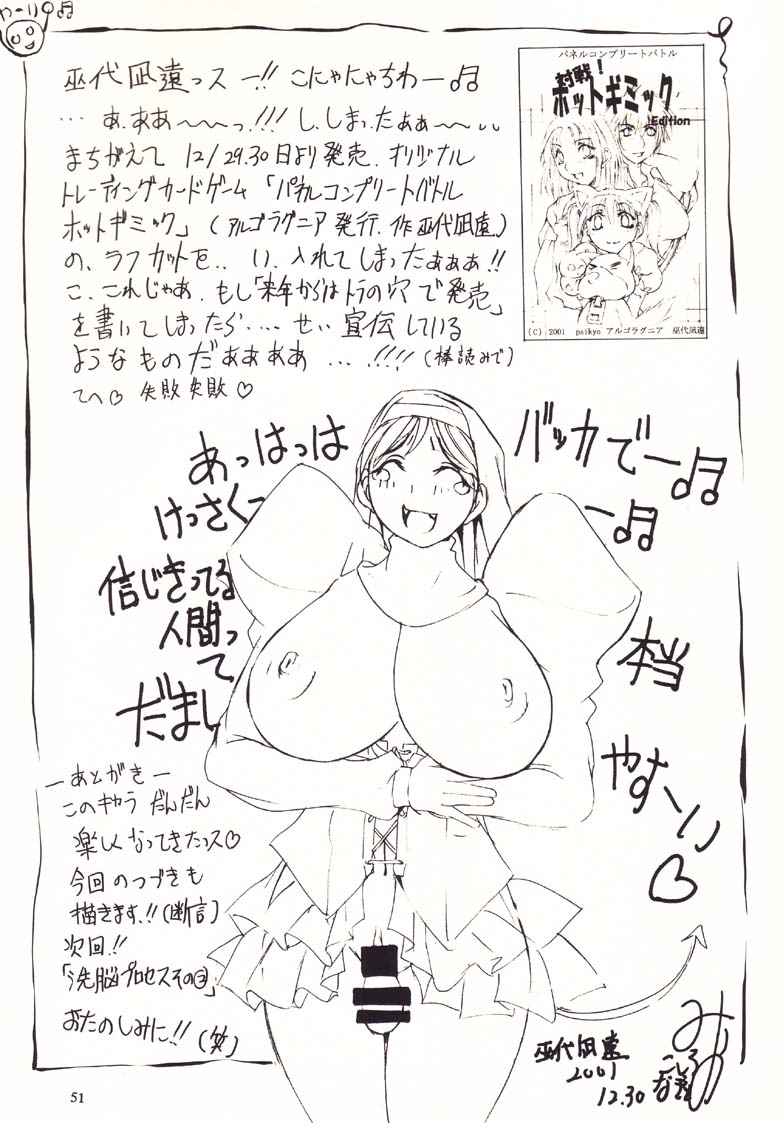 やーりぃ♫
巫代凪遠っスー!! こにゃにゃちわー♫
… あ、ああぁ〜〜〜っ!!! し、しまったぁぁ〜〜…
まちがえて 12/29.30日より発売、オリジナル
トレーディングカードゲーム「パネルコンプリートバトル
ホットギミック」(アルゴラグニア発行、作 巫代凪遠。)
の、ラフカットを‥ い、入れてしまったぁぁぁ!!
こ、これじゃあ、もし「来年からはトラの穴で発売」
を書いてしまったら‥‥ せ、宣伝している
ようなものだぁぁぁぁ … !!!! (棒読みで)
てへ♡ 失敗失敗♡
パネルコンプリートバトル
対戦!
ホットギミック
Edition
(C) 2001 psikyo アルゴラグニア 巫代凪遠
あっはっは
けっさくっ
バッカでー♫
ー♫
信じきってる
人間っ
て
だまし
本当
やすーい
♡
ーあとがきー
このキャラ だんだん
楽しくなってきたっス♡
今回のつづきも
描きます!!(断言)
次回!!
「洗脳プロセスその③」
おたのしみに!! (笑)
巫代凪遠
2001
12.30
51